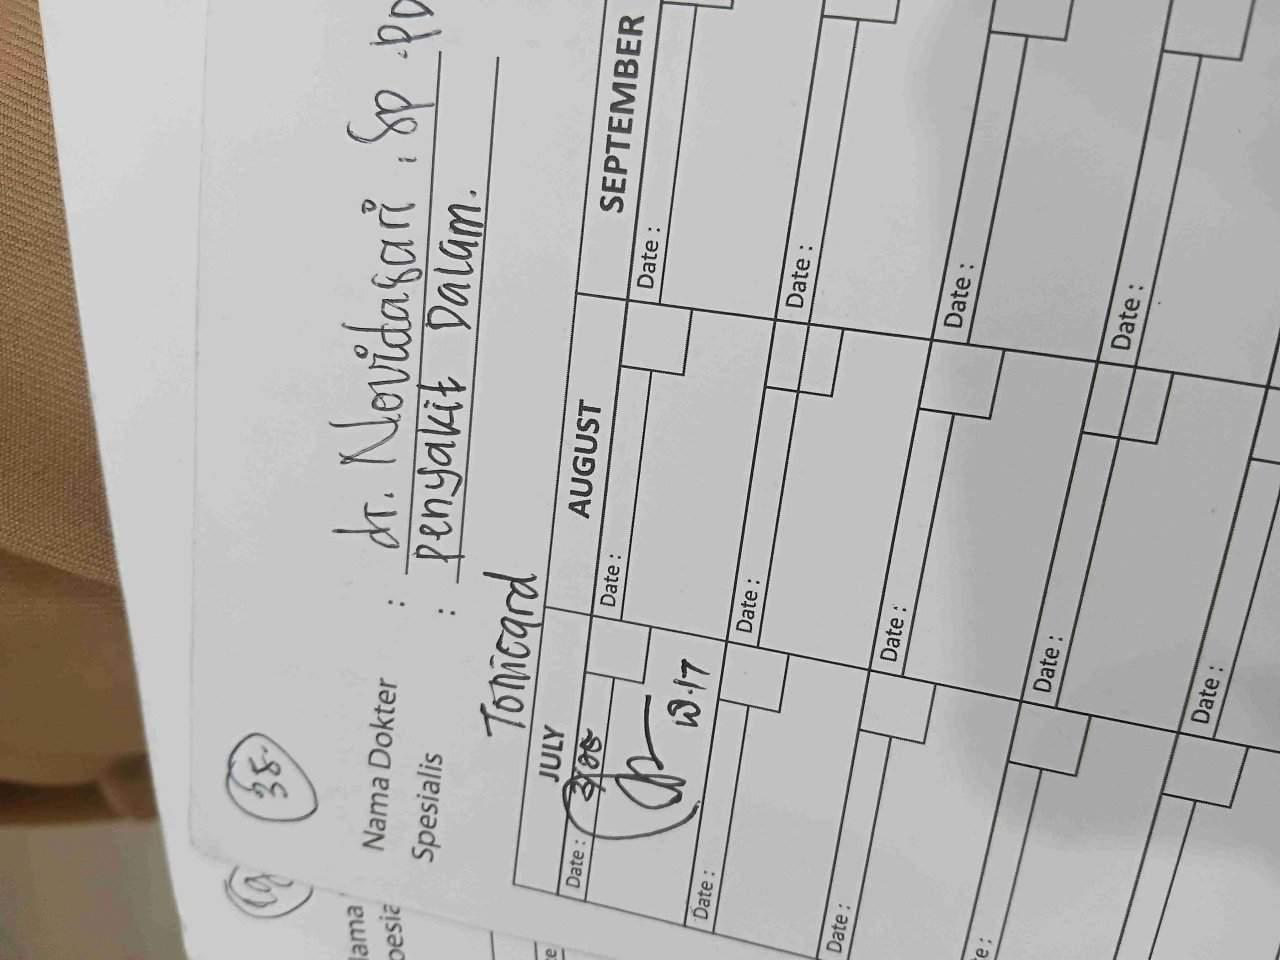 38.
Nama Dokter : dr. Novidasari, Sp.PD
Spesialis : Penyakit Dalam.
Tonicard
JULY AUGUST SEPTEMBER
Date: Date: Date:
10.17
Date: Date: Date:
Date: Date: Date:
Date: Date:
Date:
19
lama
pesia